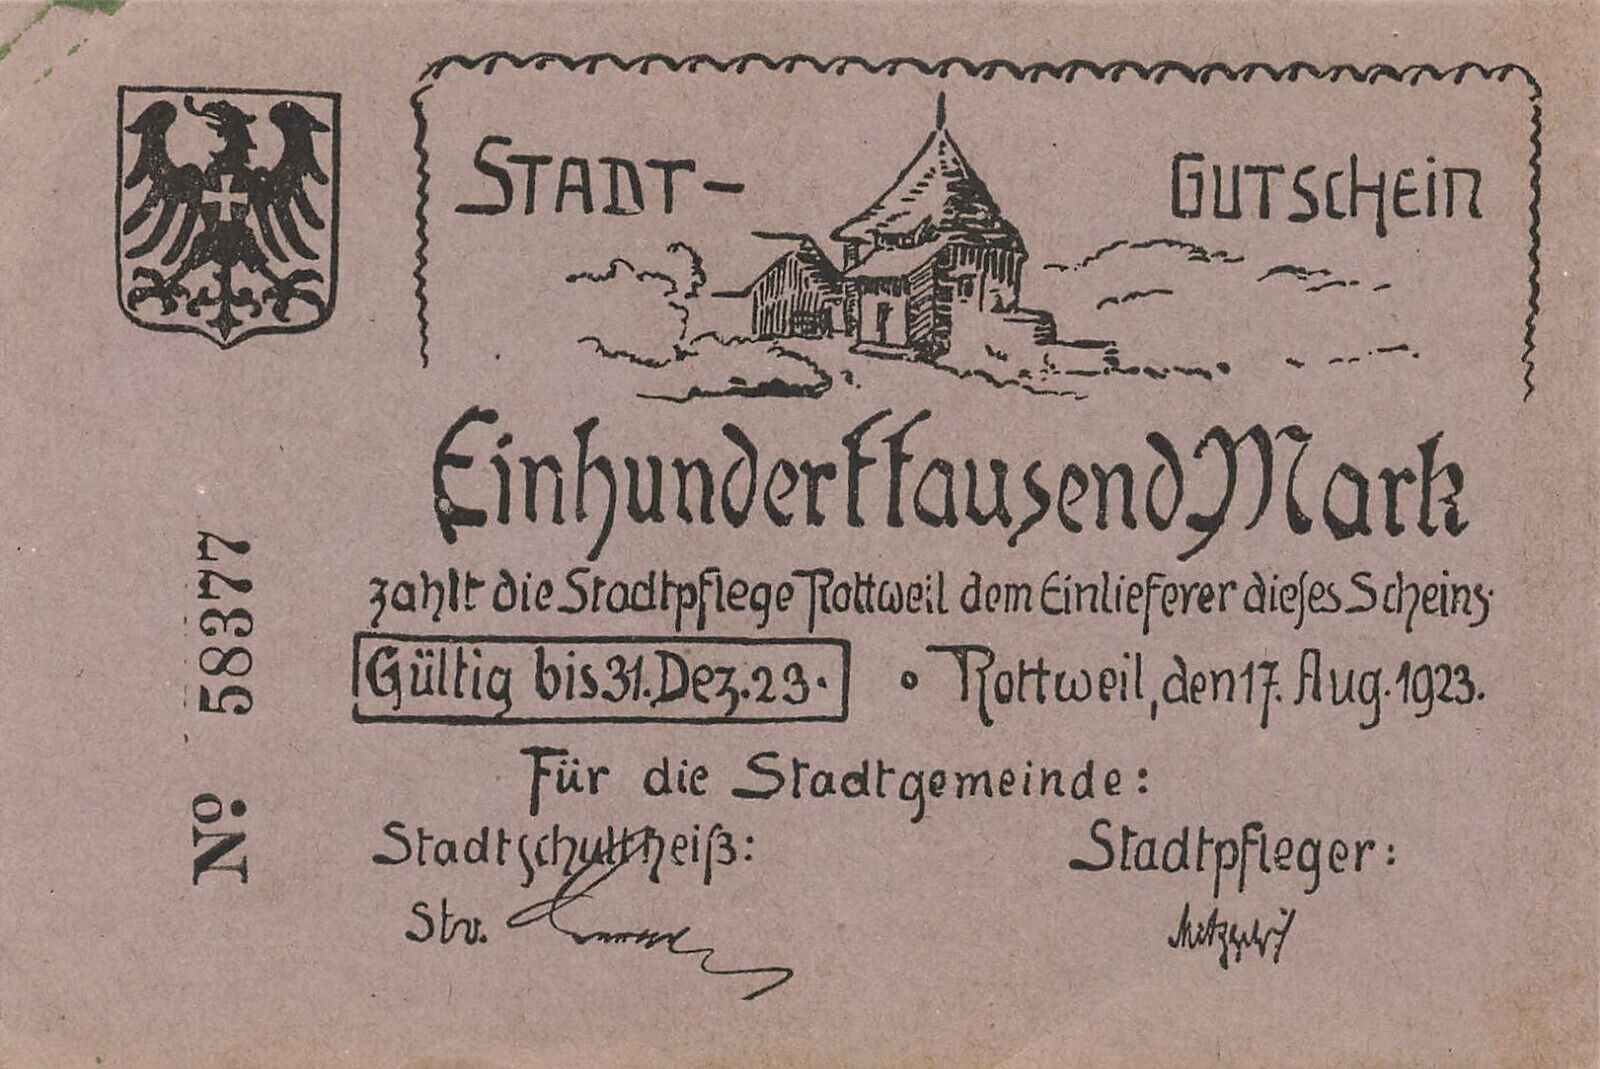 STADT- GUTSCHEIN
Einhunderttausend Mark
zahlt die Stadtpflege Rottweil dem Einlieferer dieses Scheins.
Gültig bis 31. Dez. 23. • Rottweil, den 17. Aug. 1923.
Für die Stadtgemeinde:
Stadtschultheiß: Stadtpfleger:
Stv.
No. 58377